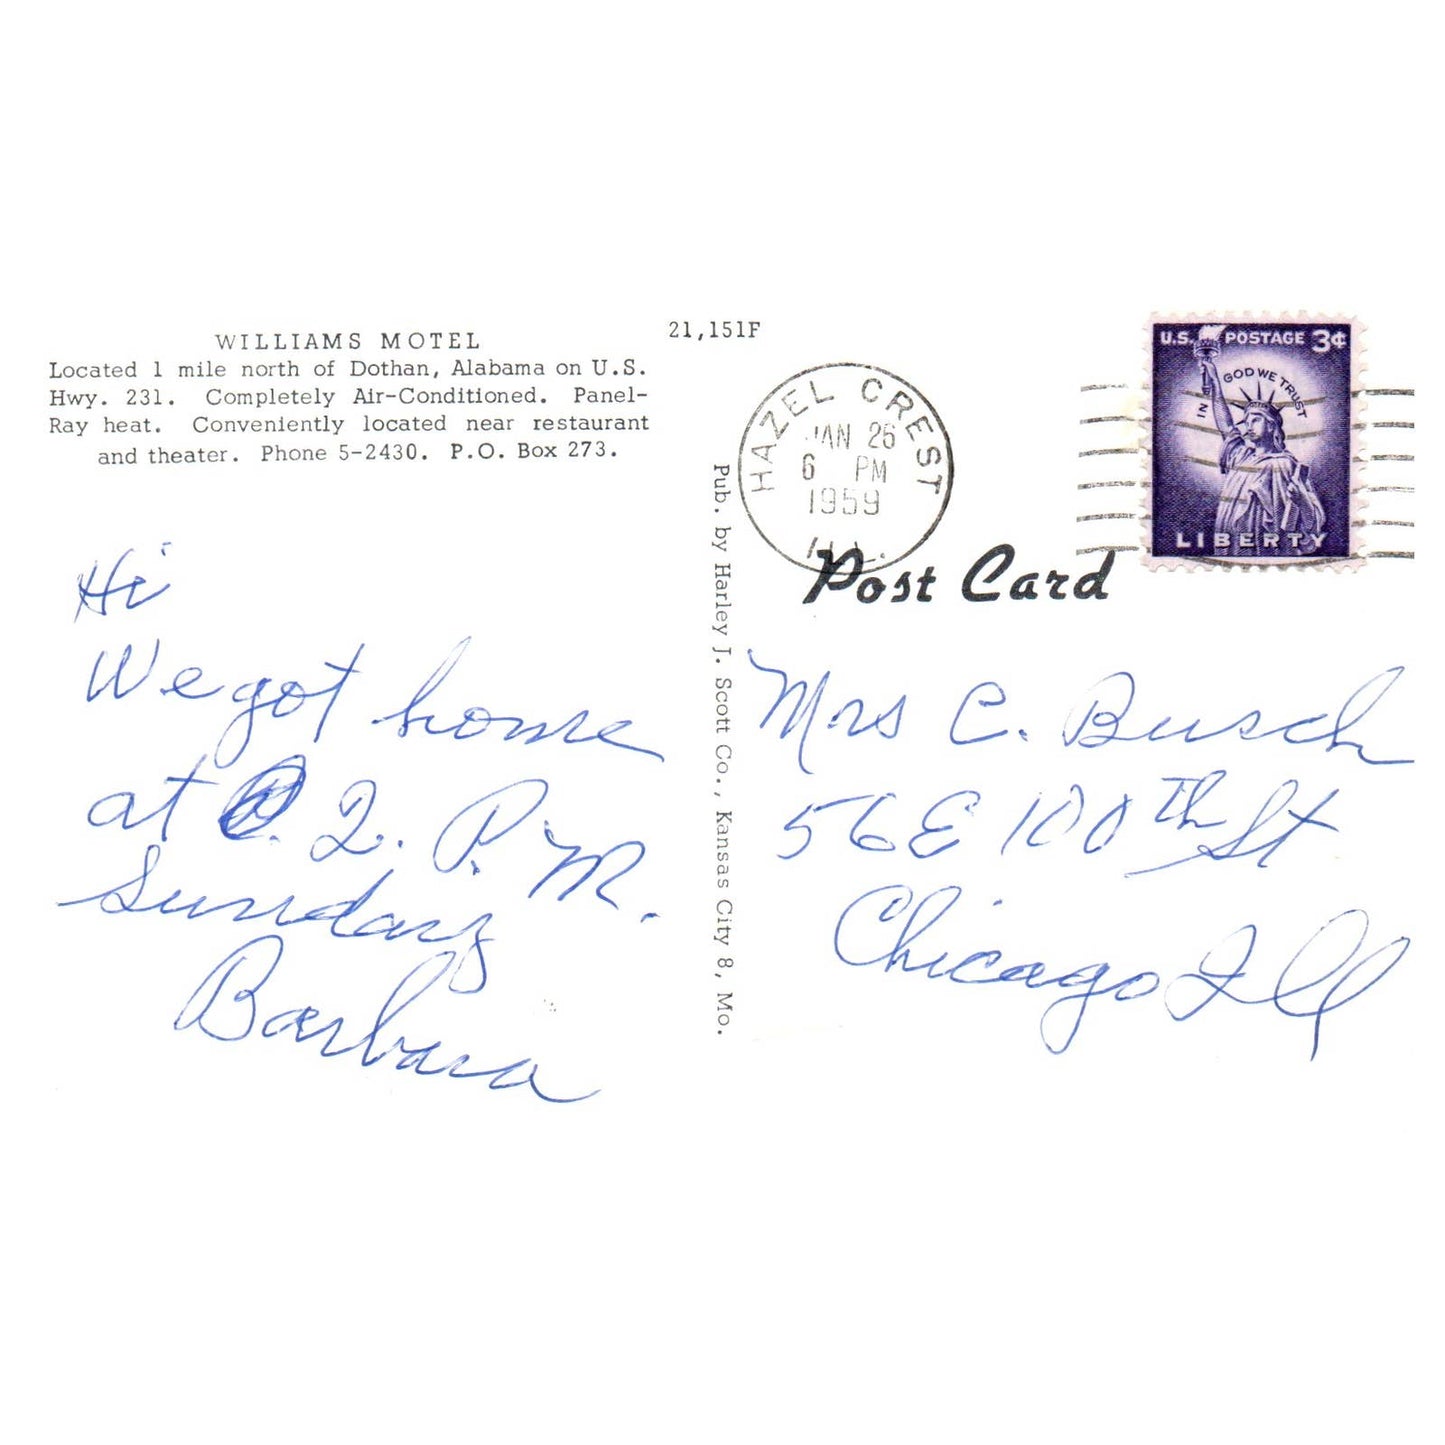 WILLIAMS MOTEL
Located 1 mile north of Dothan, Alabama on U.S.
Hwy. 231. Completely Air-Conditioned. Panel-
Ray heat. Conveniently located near restaurant
and theater. Phone 5-2430. P.O. Box 273.
21,151F
Hi
We got home
at 2. P.M.
Sunday
Barbara
Pub. by Harley J. Scott Co., Kansas City 8, Mo.
HAZEL CREST
JAN 26
6 PM
1959
ILL.
U.S. POSTAGE 3¢
IN GOD WE TRUST
LIBERTY
Post Card
Mrs C. Busch
56 E 100th St
Chicago Ill